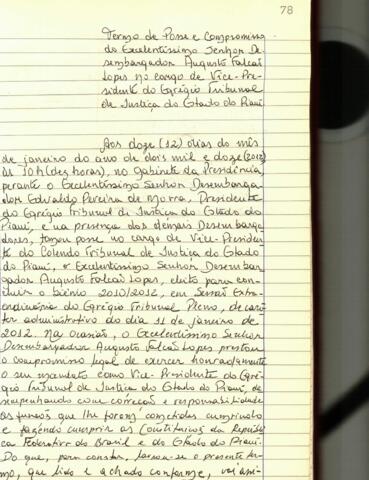 78
Termo de Posse e Compromisso
do Excelentíssimo Senhor De-
sembargador Augusto Falcão
Lopes no cargo de Vice-Pre-
sidente do Egrégio Tribunal
de Justiça do Estado do Piauí
Aos doze (12) dias do mês
de janeiro do ano de dois mil e doze (2012)
às 10h (dez horas), no Gabinete da Presidência,
perante o Excelentíssimo Senhor Desembarga-
dor Edvaldo Pereira de Moura, Presidente
do Egrégio Tribunal de Justiça do Estado do
Piauí, e na presença dos demais Desembarga-
dores, tomou posse no cargo de Vice-Presiden-
te do Colendo Tribunal de Justiça do Estado
do Piauí, o Excelentíssimo Senhor Desembar-
gador Augusto Falcão Lopes, eleito para con-
cluir o biênio 2010/2012, em Sessão Extra-
ordinária do Egrégio Tribunal Pleno, de cará-
ter administrativo do dia 11 de janeiro de
2012. Na ocasião, o Excelentíssimo Senhor
Desembargador Augusto Falcão Lopes prestou
o compromisso legal de exercer honradamente
o seu mandato como Vice-Presidente do Egré-
gio Tribunal de Justiça do Estado do Piauí, de-
sempenhando com correção e responsabilidade
as funções que lhe forem cometidas cumprindo
e fazendo cumprir as Constituições da Repúbli-
ca Federativa do Brasil e do Estado do Piauí.
Do que, para constar, lavrou-se o presente ter-
mo, que lido e achado conforme, vai assi-